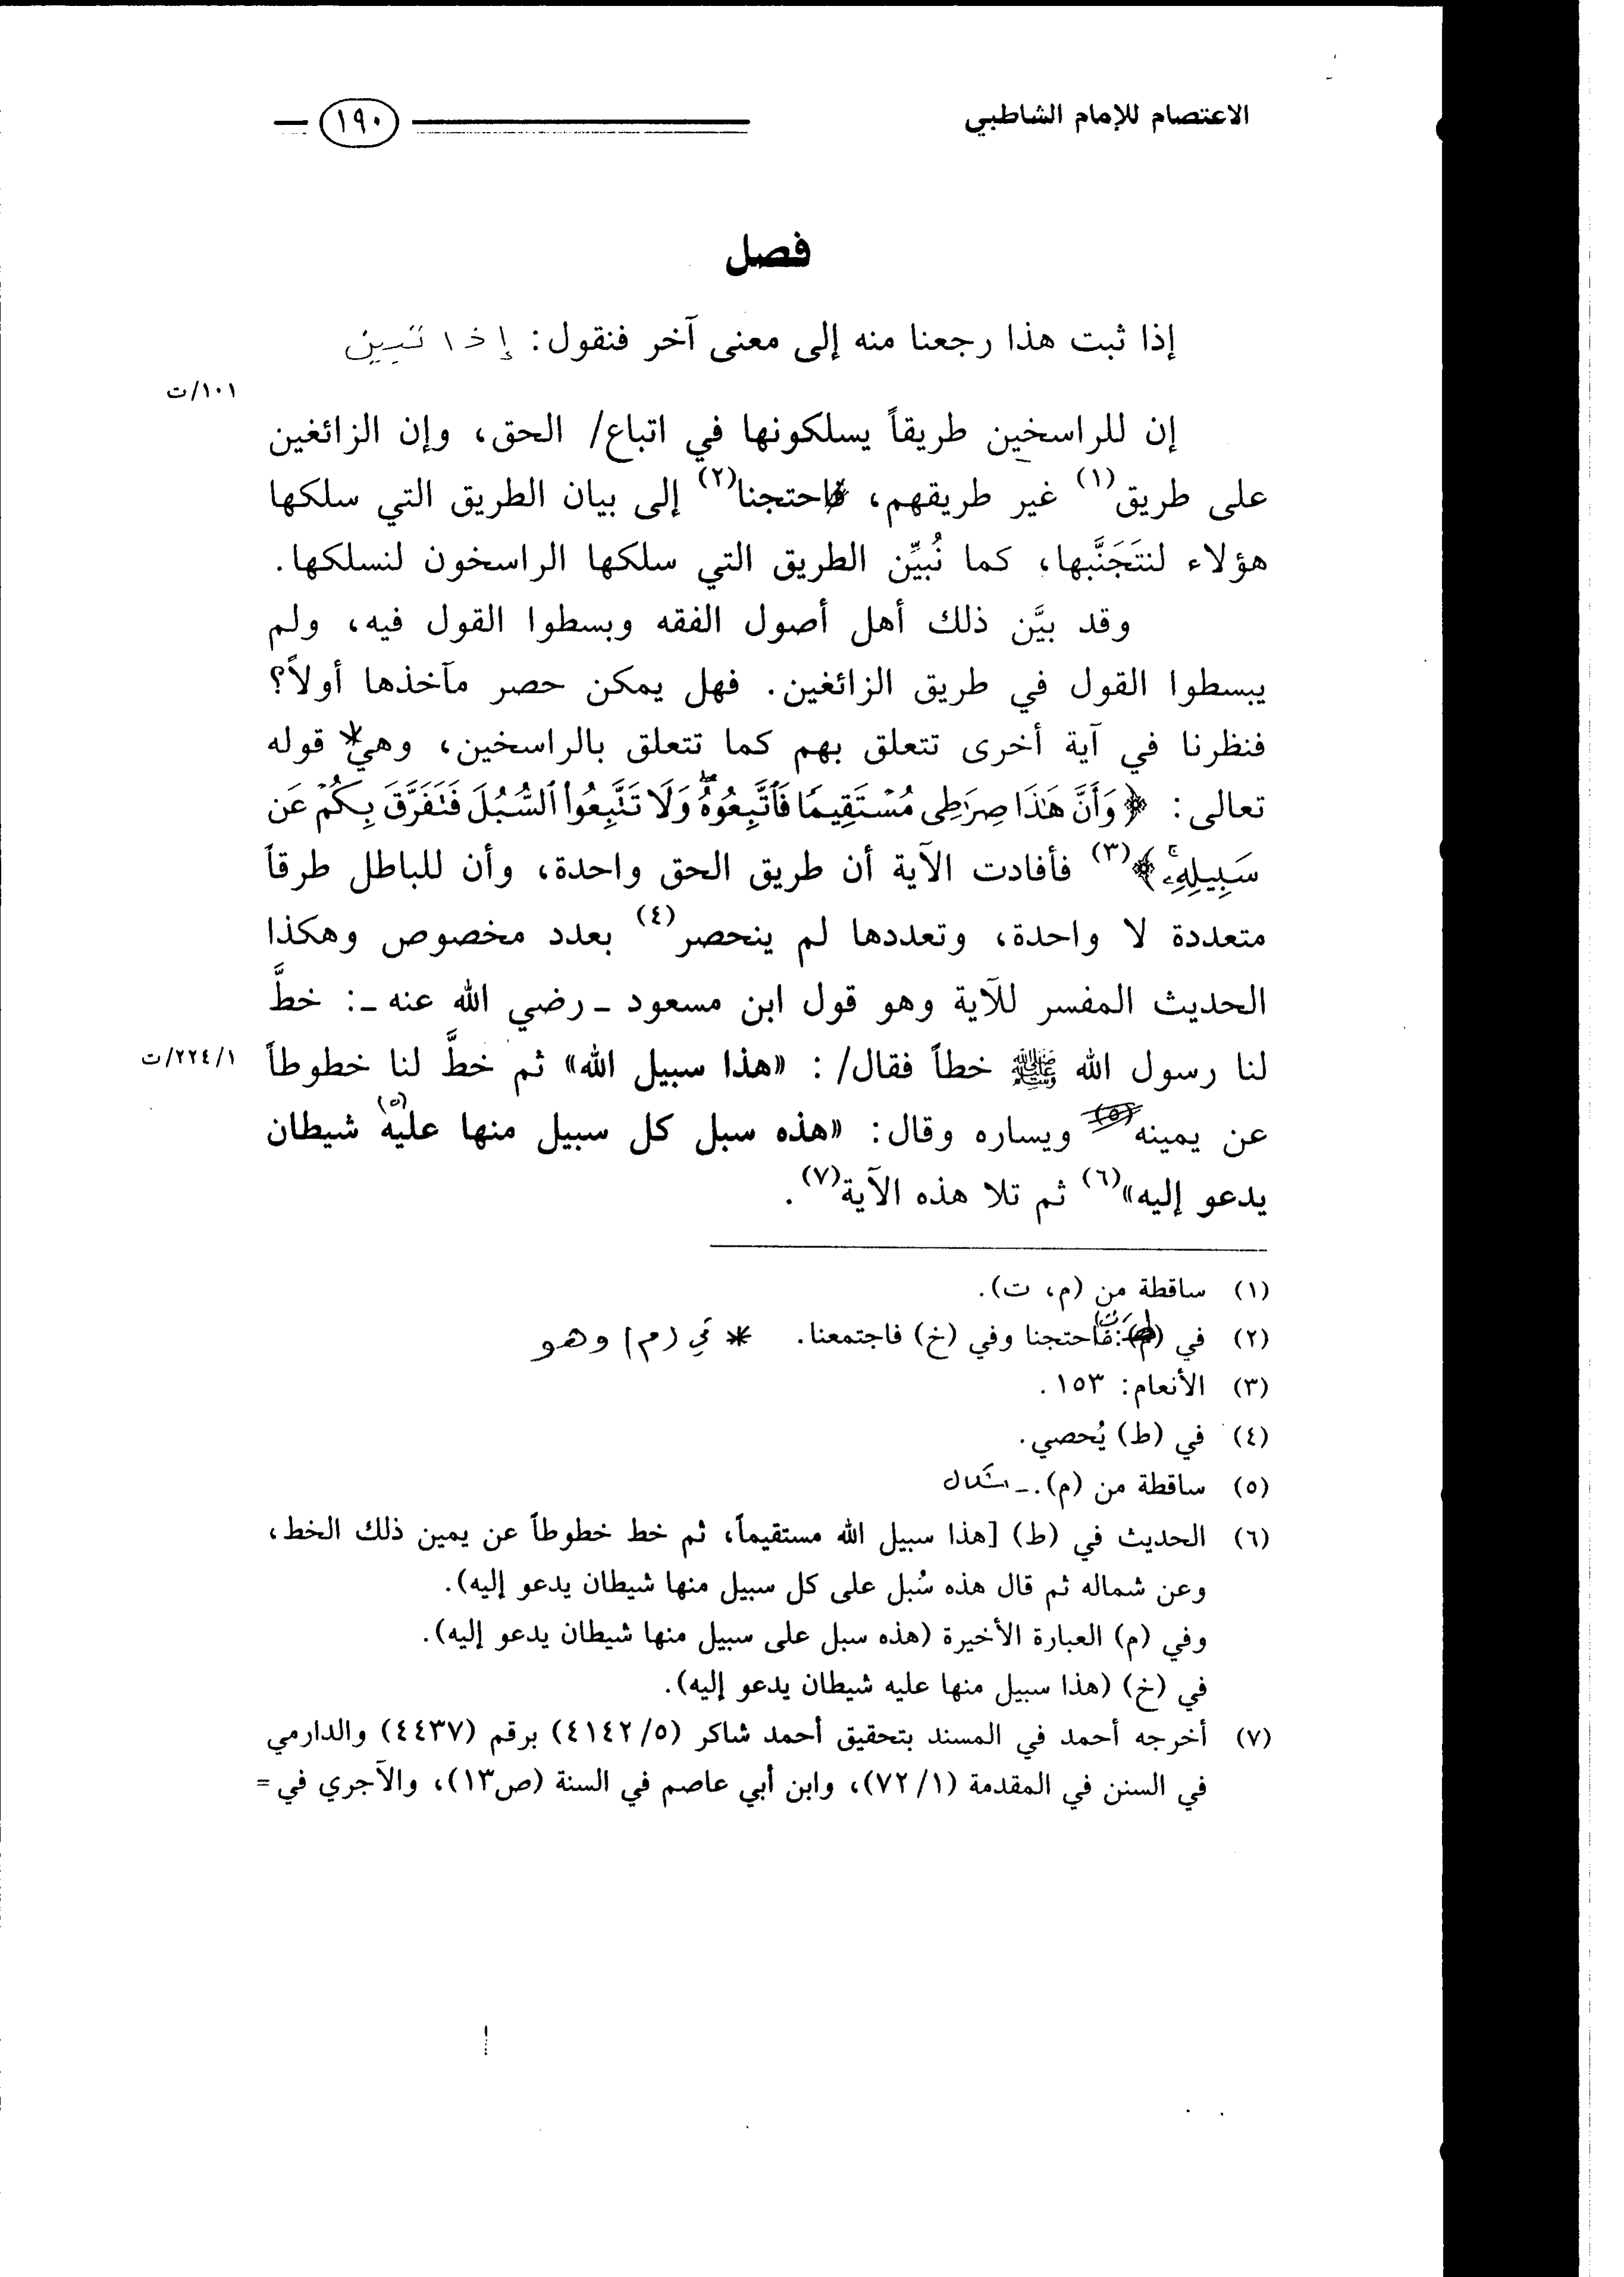 الاعتصام للإمام الشاطبي
١٩٠
فصل
إذا ثبت هذا رجعنا منه إلى معنى آخر فنقول: إذا تبين
١٠١/ت
إن للراسخين طريقاً يسلكونها في اتباع/ الحق، وإن الزائغين
على طريق(١) غير طريقهم، فاحتجنا(٢) إلى بيان الطريق التي سلكها
هؤلاء لنتَجَنَّبها، كما نُبيِّن الطريق التي سلكها الراسخون لنسلكها.
وقد بيَّن ذلك أهل أصول الفقه وبسطوا القول فيه، ولم
يبسطوا القول في طريق الزائغين. فهل يمكن حصر مآخذها أولاً؟
فنظرنا في آية أخرى تتعلق بهم كما تتعلق بالراسخين، وهي* قوله
تعالى: ﴿وَأَنَّ هَٰذَا صِرَٰطِى مُسْتَقِيمًا فَٱتَّبِعُوهُ ۖ وَلَا تَتَّبِعُوا۟ ٱلسُّبُلَ فَتَفَرَّقَ بِكُمْ عَن
سَبِيلِهِۦ ۚ﴾(٣) فأفادت الآية أن طريق الحق واحدة، وأن للباطل طرقاً
متعددة لا واحدة، وتعددها لم ينحصر(٤) بعدد مخصوص وهكذا
الحديث المفسر للآية وهو قول ابن مسعود ـ رضي الله عنه ـ: خطَّ
لنا رسول الله ﷺ خطاً فقال/: «هذا سبيل الله» ثم خطَّ لنا خطوطاً
٢٢٤/١/ت
عن يمينه(٥) ويساره وقال: «هذه سبل كل سبيل منها عليه(٥) شيطان
يدعو إليه»(٦) ثم تلا هذه الآية(٧).
(١) ساقطة من (م، ت).
(٢) في (م): فاحتجنا وفي (خ) فاجتمعنا. * في (م) وهو
(٣) الأنعام: ١٥٣.
(٤) في (ط) يُحصي.
(٥) ساقطة من (م).
(٦) الحديث في (ط) [هذا سبيل الله مستقيماً، ثم خط خطوطاً عن يمين ذلك الخط،
وعن شماله ثم قال هذه سُبل على كل سبيل منها شيطان يدعو إليه).
وفي (م) العبارة الأخيرة (هذه سبل على سبيل منها شيطان يدعو إليه).
في (خ) (هذا سبيل منها عليه شيطان يدعو إليه).
(٧) أخرجه أحمد في المسند بتحقيق أحمد شاكر (٤١٤٢/٥) برقم (٤٤٣٧) والدارمي
في السنن في المقدمة (٧٢/١)، وابن أبي عاصم في السنة (ص١٣)، والآجري في =